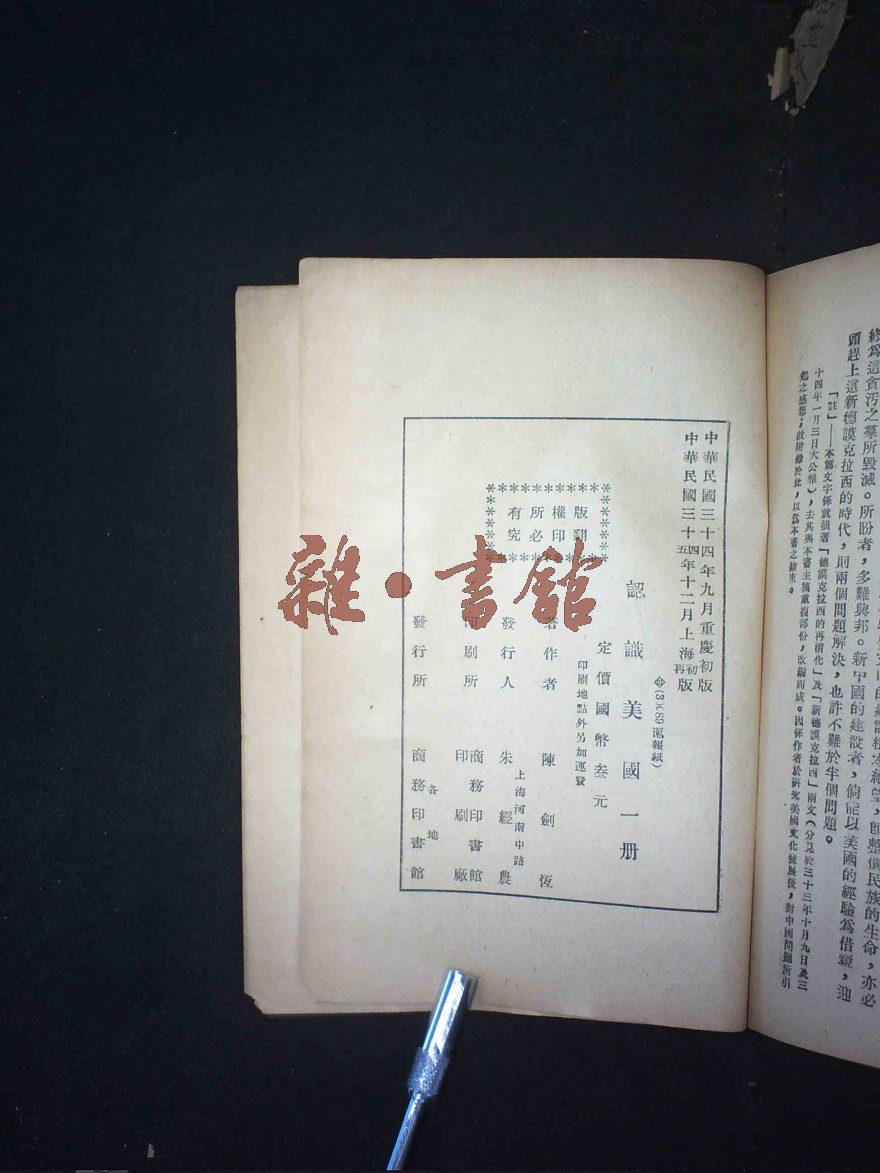 的建設根本絕望，卽整個民族的生命，亦必
終爲這貪汚之羣所毀滅。所盼者，多難興邦。新中國的建設者，倘能以美國的經驗爲借鏡，迎
頭趕上這新德謨克拉西的時代，則兩個問題解決，也許不難於半個問題。
「註」——本篇文字係就拙著「德謨克拉西的再消化」及「新德謨克拉西」兩文（分見於三十三年十月九日及三
十四年一月三日大公報），去其與本書主旨重複部份，改編而成。因係作者於研究美國文化發展後，對中國問題所引
起之感想；故附錄於此，以爲本書之結束。
中華民國三十四年九月重慶初版
中華民國三十四五年十二月上海初再版
(3)(89滬報紙)
認識美國一册
定價國幣叁元
印刷地點外另加運費
版權所有
翻印必究
著作者 陳劍恆
上海河南中路
發行人 朱經農
印刷所 商務印書館
印刷廠
各地
發行所 商務印書館
雜·書館